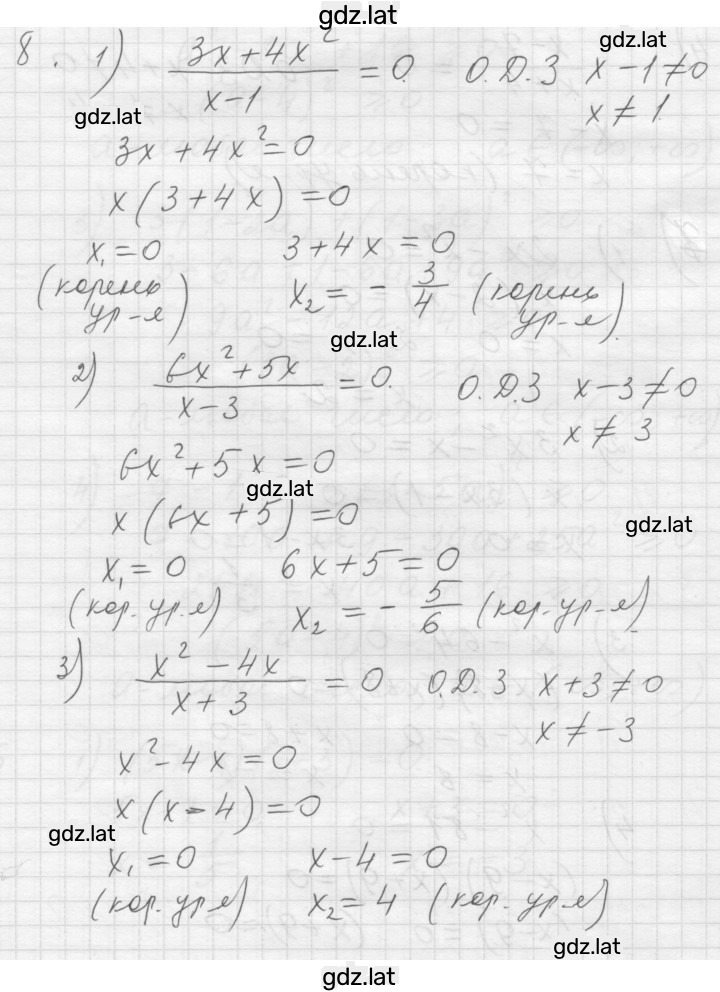 gdz.lat
8. 1) (3x+4x²)/(x-1) = 0 О.Д.З x-1≠0
gdz.lat
gdz.lat
x≠1
3x+4x²=0
x(3+4x)=0
x₁=0 3+4x=0
(корень ур-я) x₂=-3/4 (корень ур-я).
gdz.lat
2) (6x²+5x)/(x-3) = 0. О.Д.З x-3≠0
x≠3
6x²+5x=0
gdz.lat
x(6x+5)=0
gdz.lat
x₁=0 6x+5=0
(кор. ур-я) x₂=-5/6 (кор. ур-я)
3) (x²-4x)/(x+3) = 0 О.Д.З x+3≠0
x≠-3
x²-4x=0
x(x-4)=0
gdz.lat
x₁=0 x-4=0
(кор. ур-я) x₂=4 (кор. ур-я)
gdz.lat
gdz.lat